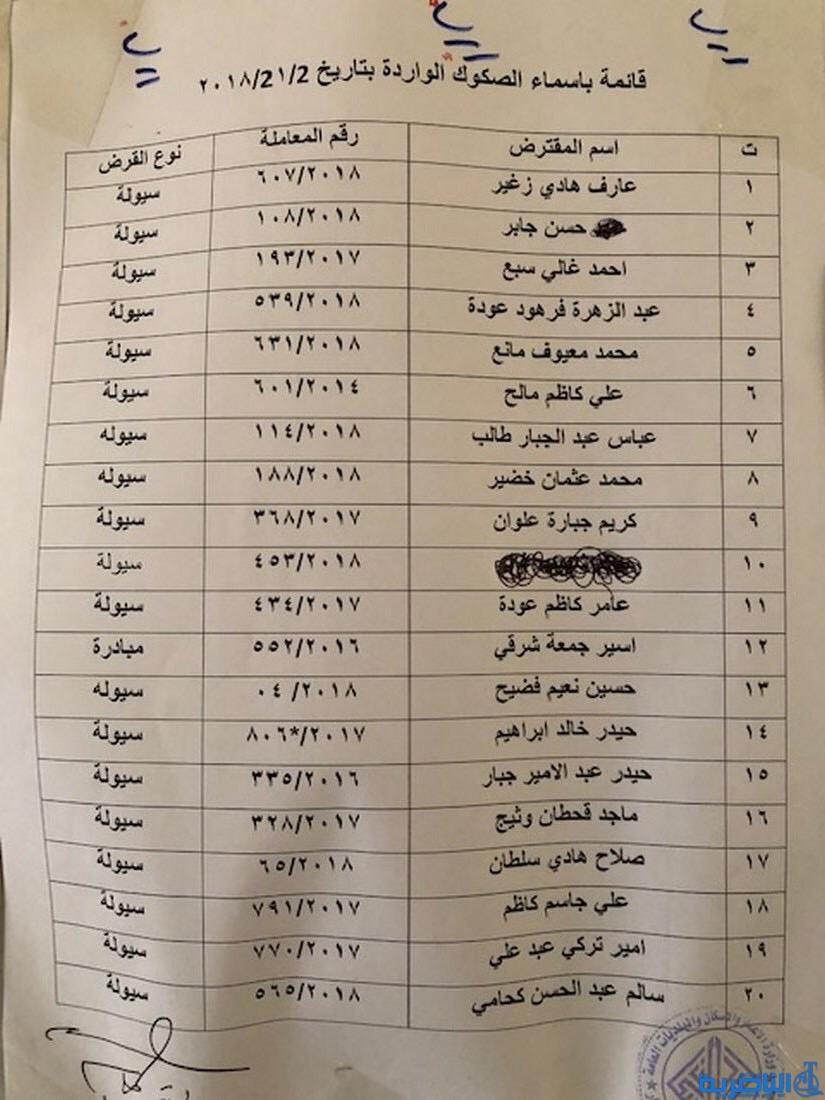 قائمة باسماء الصكوك الواردة بتاريخ 2/٢١/٢٠١٨
ت اسم المقترض رقم المعاملة نوع القرض
١ عارف هادي زغير ٦٠٧/٢٠١٨ سيولة
٢ حسن جابر ١٠٨/٢٠١٨ سيولة
٣ احمد غالي سبع ١٩٣/٢٠١٧ سيولة
٤ عبد الزهرة فرهود عودة ٥٣٩/٢٠١٨ سيولة
٥ محمد معيوف مانع ٦٣١/٢٠١٨ سيولة
٦ علي كاظم مالح ٦٠١/٢٠١٤ سيولة
٧ عباس عبد الجبار طالب ١١٤/٢٠١٨ سيوله
٨ محمد عثمان خضير ١٨٨/٢٠١٨ سيوله
٩ كريم جبارة علوان ٣٦٨/٢٠١٧ سيولة
١٠ ٤٥٣/٢٠١٨ سيولة
١١ عامر كاظم عودة ٤٣٤/٢٠١٧ سيولة
١٢ اسير جمعة شرقي ٥٥٢/٢٠١٦ مبادرة
١٣ حسين نعيم فضيح ٠٤/٢٠١٨ سيوله
١٤ حيدر خالد ابراهيم ٨٠٦*/٢٠١٧ سيولة
١٥ حيدر عبد الامير جبار ٣٣٥/٢٠١٦ سيولة
١٦ ماجد قحطان وثيج ٣٢٨/٢٠١٧ سيولة
١٧ صلاح هادي سلطان ٦٥/٢٠١٨ سيولة
١٨ علي جاسم كاظم ٧٩١/٢٠١٧ سيولة
١٩ امير تركي عبد علي ٧٧٠/٢٠١٧ سيولة
٢٠ سالم عبد الحسن كحامي ٥٦٥/٢٠١٨ سيولة
وزارة الاعمار والاسكان والبلديات العامة
الناصرية